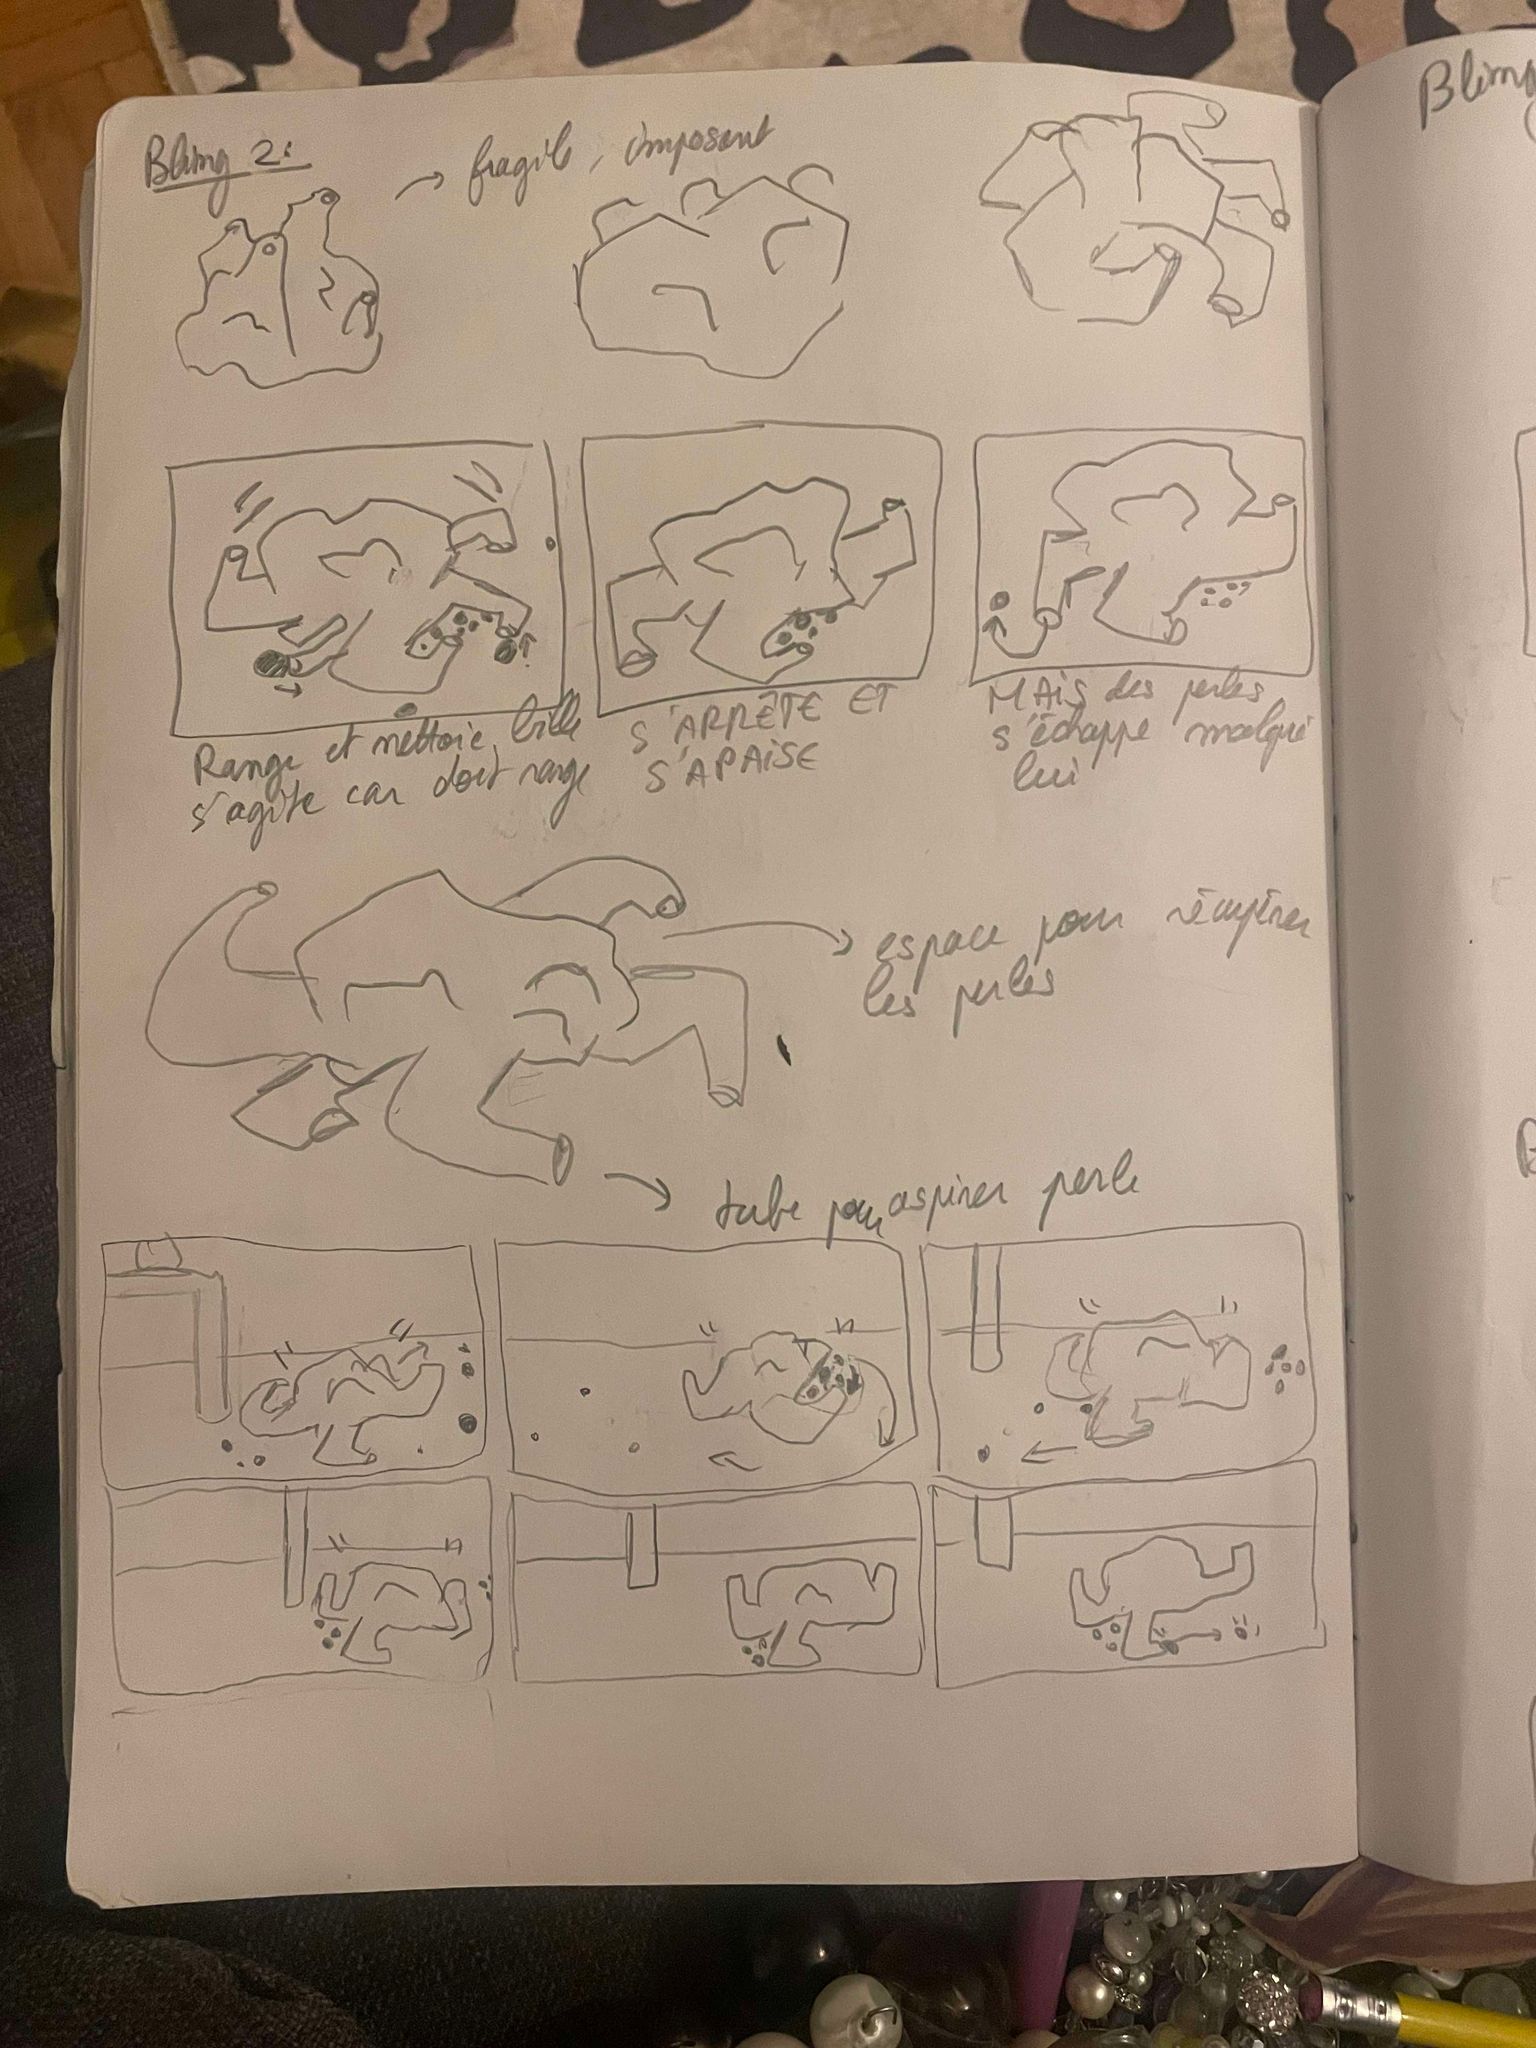 Bling 2:
→ fragile, imposant
Blimg
Range et nettoie, bille
s'agite car doit range
S'ARRÊTE ET
S'APAISE
MAIS des perles
s'échappe malgré
lui
→ espace pour récupérer
les perles
→ tube pour aspirer perle